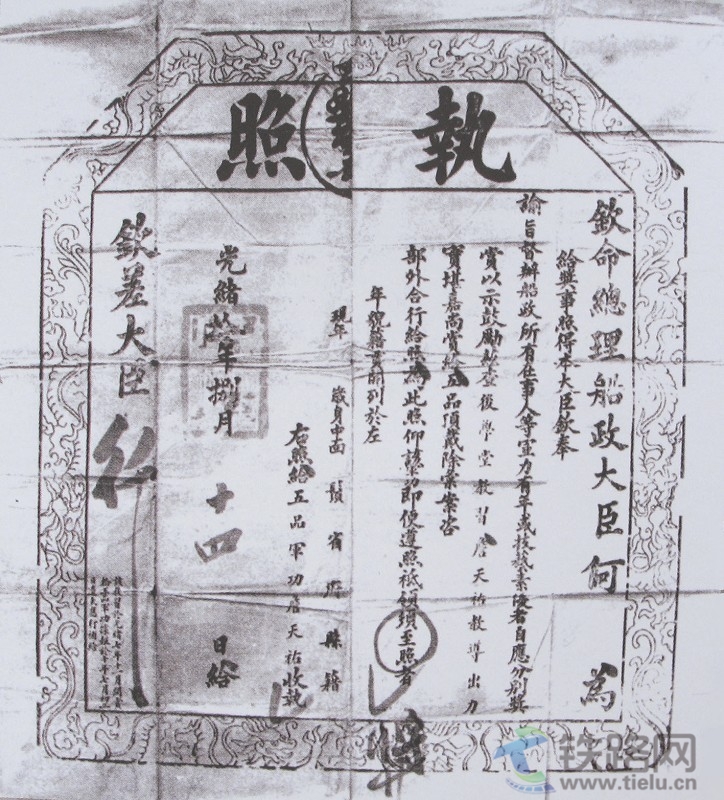 執照
欽命總理船政大臣何 為
給獎事照得本大臣欽奉
諭旨督辦船政所有在事人等宣力有年或技藝素優者自應分別獎
賞以示鼓勵茲查後學堂教習詹天祐教導出力
實堪嘉尚賞給五品頂戴除彙案咨
部外合行給照為此照仰該軍功即便遵照祗領須至照者
年貌籍貫開列於左
現年 歲身中面 鬚 省 府 縣籍
右照給五品軍功詹天祐收執
光緒拾年捌月 十四 日給
欽差大臣
铁路网
www.tielu.cn